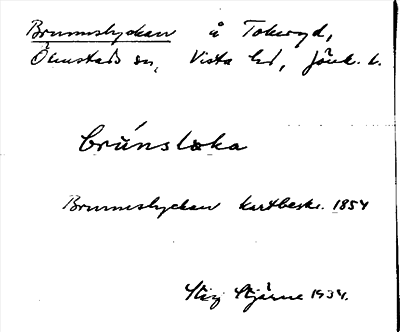 Brunnslyckan å Tokeryd,
Ölmstads sn, Vista hd, Jönk. l.
brúnsløka
Brunneslyckan kartbeskr. 1854
Stig Stjärne 1934.